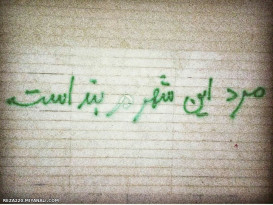 مرد این شهر در بند است
REZA220.MIYANALI.COM